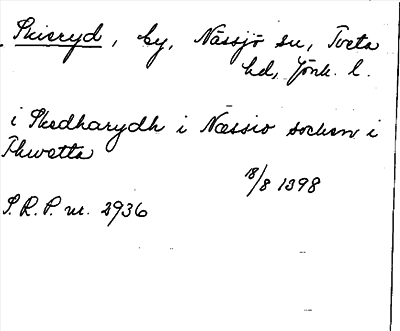 Skieryd, by, Nässjö sn, Tveta
hd, Jönk. l.
i Skedharydh i Næssio sochen i
Thwetta
18/8 1398
S.R.P. nr. 2936